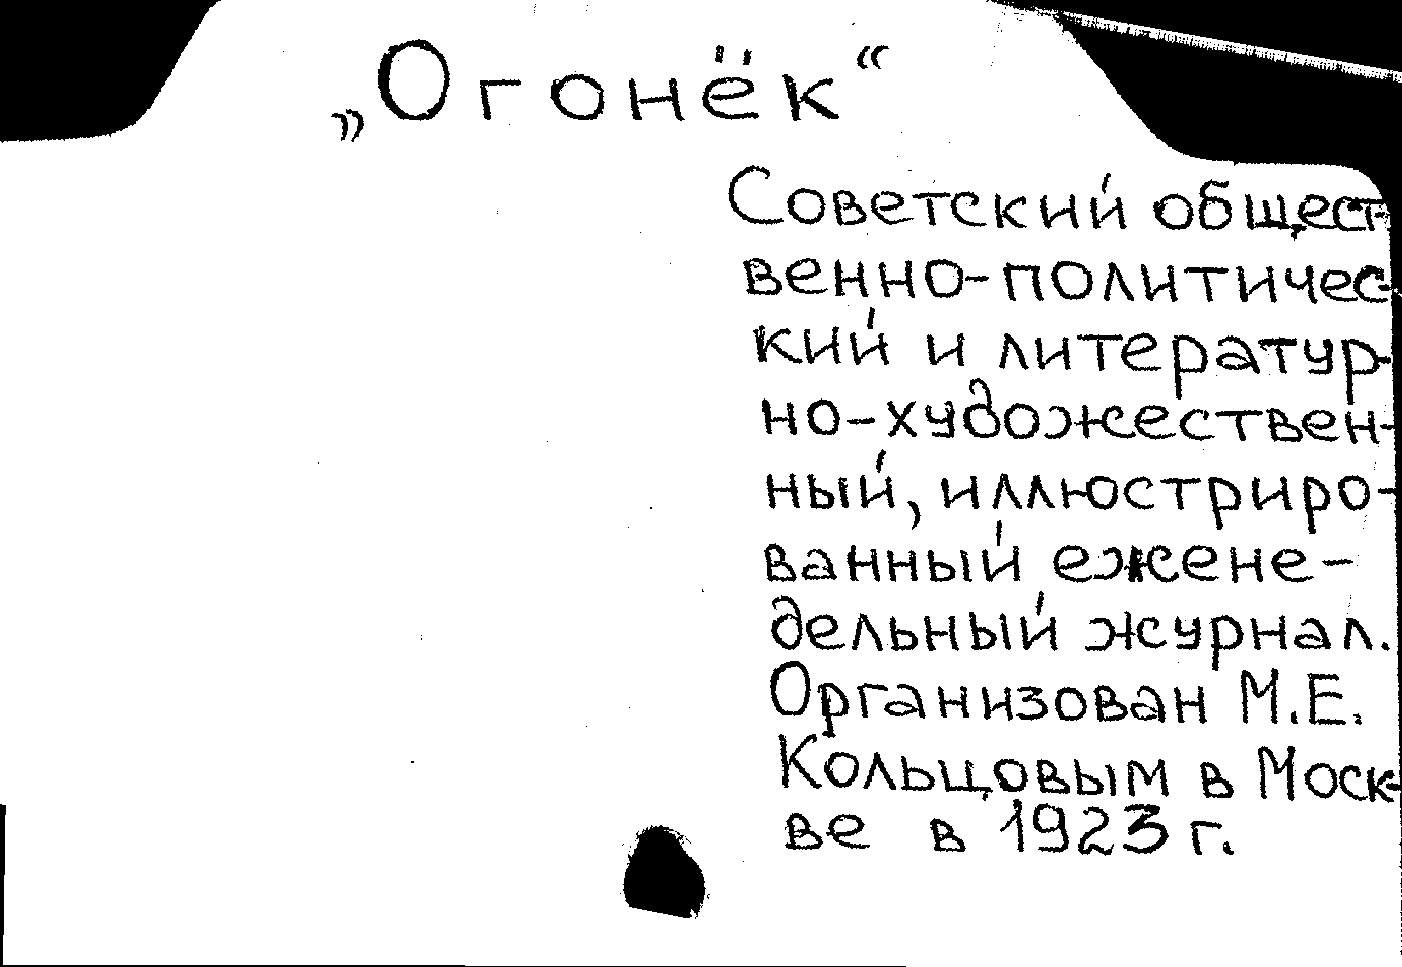 „Огонёк“
Советский общест-
венно-политичес-
кий и литератур-
но-художествен-
ный, иллюстриро-
ванный ежене-
дельный журнал.
Организован М.Е.
Кольцовым в Моск-
ве в 1923 г.